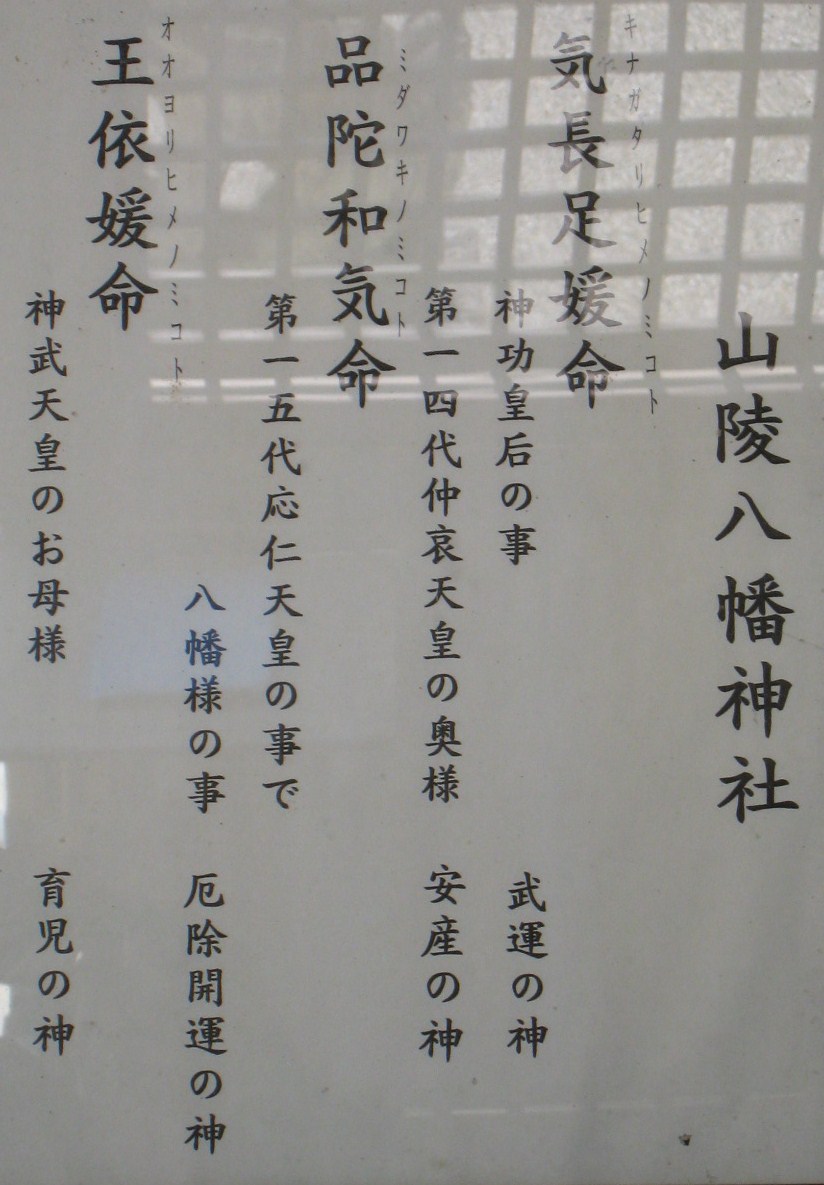 山陵八幡神社
キナガタリヒメノミコト
気長足媛命
神功皇后の事 武運の神
第一四代仲哀天皇の奥様 安産の神
ミダワキノミコト
品陀和気命
第一五代応仁天皇の事で
八幡様の事 厄除開運の神
オオヨリヒメノミコト
王依媛命
神武天皇のお母様 育児の神